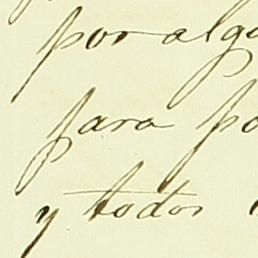 por alg
para po
y todos